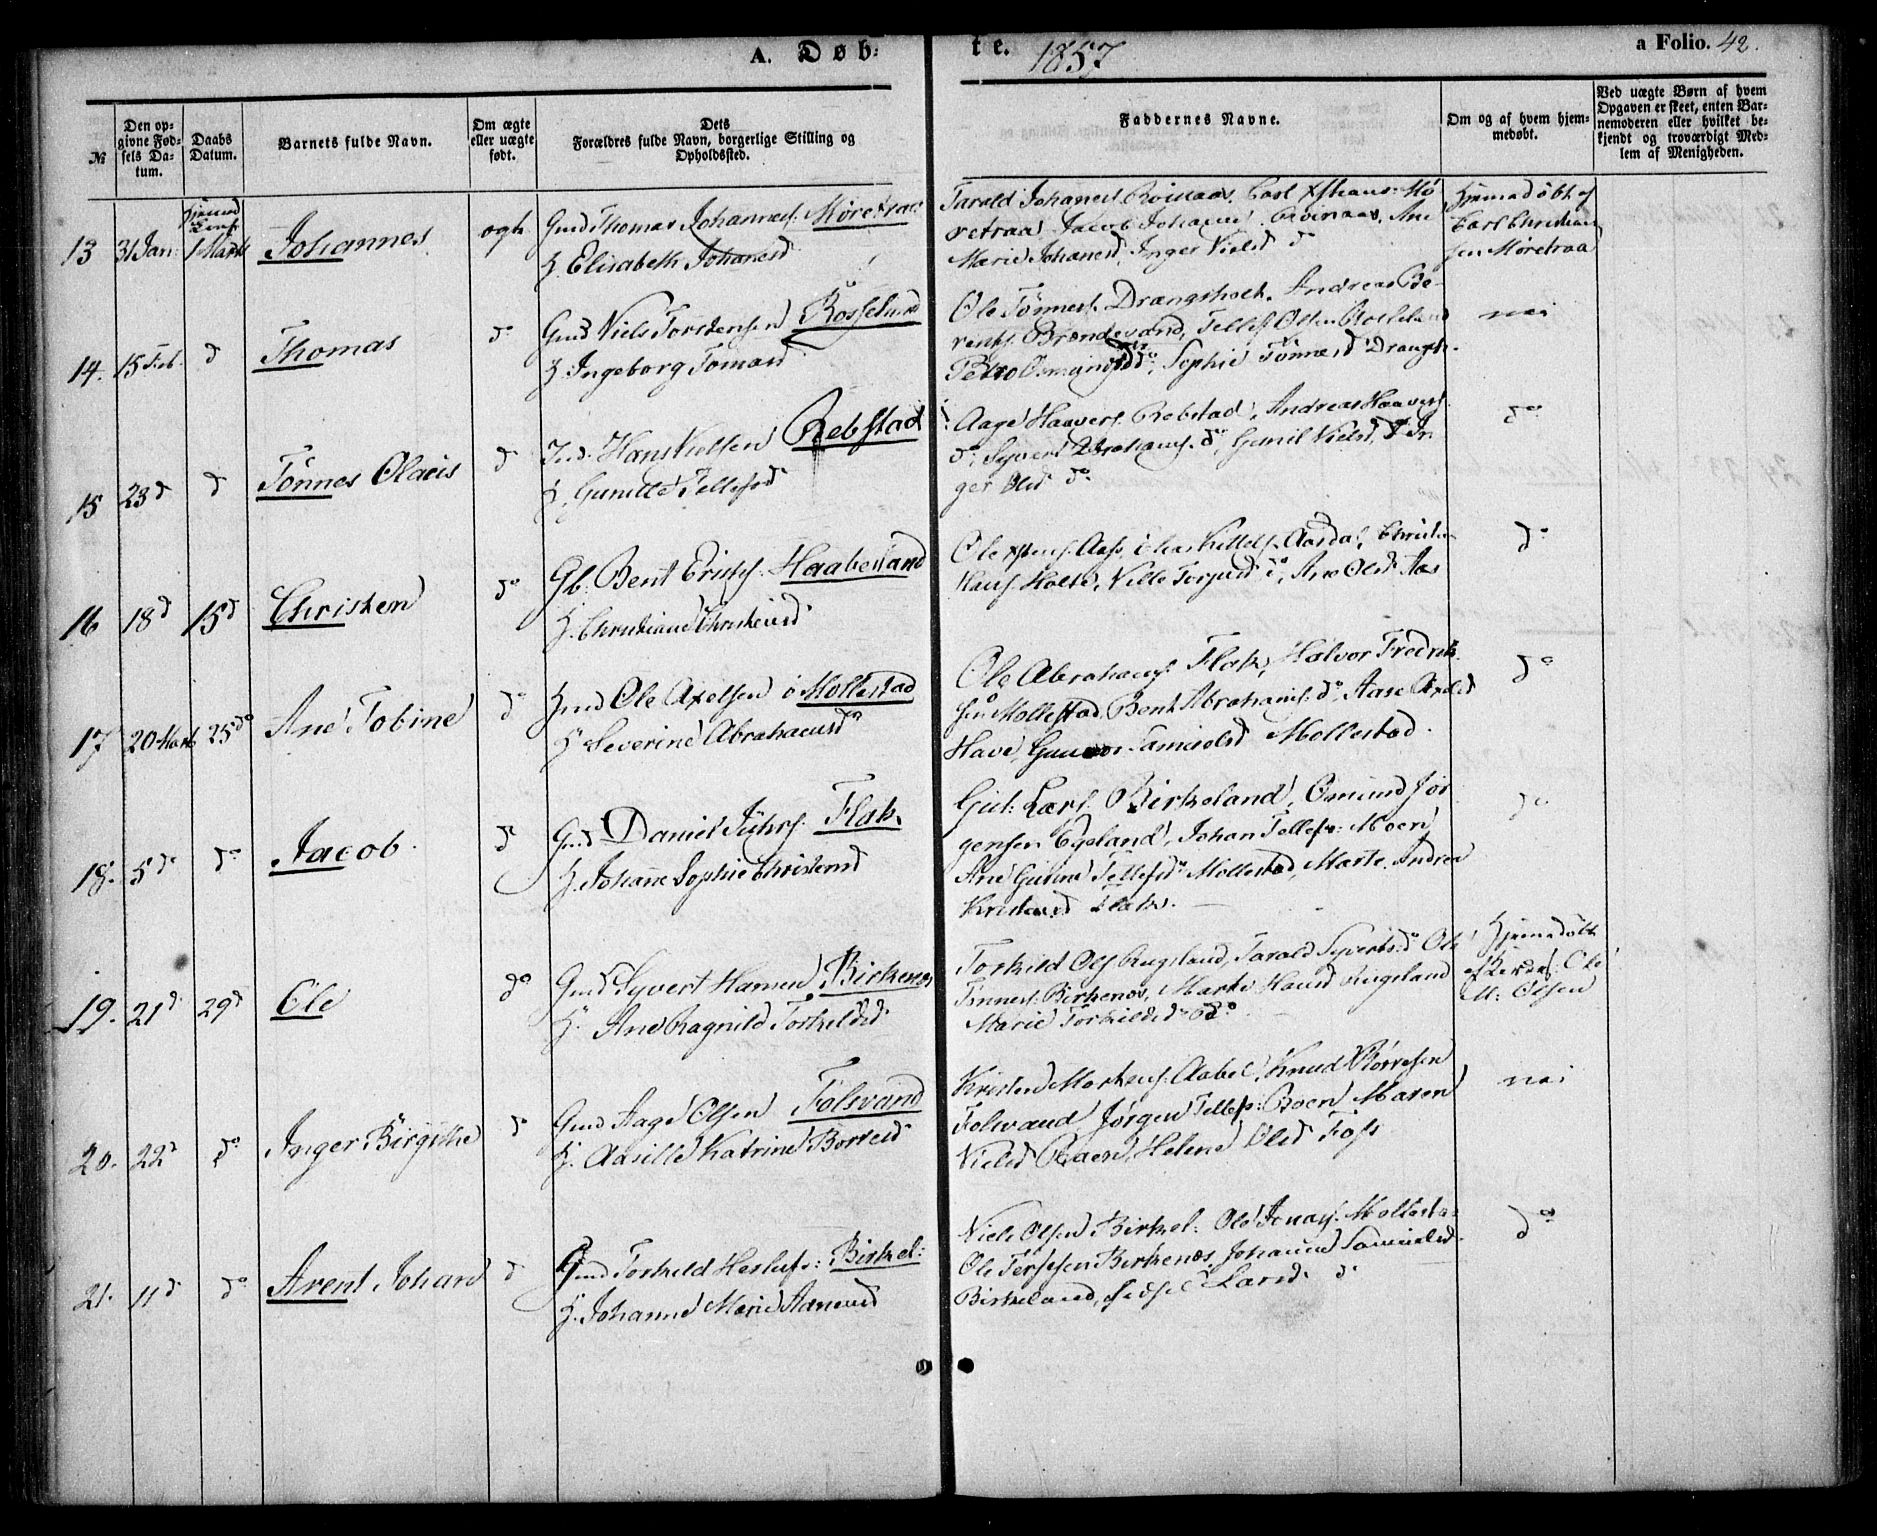 A. Døb: te. 1857 a Folio. 42.
№
Den opgivne Fødsels Datum.
Daabs Datum.
Barnets fulde Navn.
Om ægte eller uægte født.
Dets Forældres fulde Navn, borgerlige Stilling og Opholdssted.
Faddernes Navne.
Om og af hvem hjemmedøbt.
Ved uægte Børn af hvem Opgaven er skeet, enten Barnemoderen eller hvilket bekjendt og troværdigt Medlem af Menigheden.
13 31 Jan: 1 Marts Johannes ægte Gmd Thomas Johannesf. Møretraa
H. Elisabeth Johanesd
Tarald Johanesf. Røinaas, Carl Xstians: Mø
retraa Jacob Johanesf. Røinaas, Ane
Marie Johanesd, Inger Nielsd do
Hjemmedøbt af
Carl Christian
sen Møretraa
14. 15 Feb. d Thomas do Gmd Niels Torstensen Rosseland
H. Ingeborg Tomasd
Ole Tønnesf. Drangsholt, Andreas Be-
rentsf. Brøndevand, Tellef Olsen Rosseland
Petro Osmundsd do, Sophie Tønnesd Drangsh.
nei
15 23 d d Tønnes Olaeis d Ind. Hans Nielsen Rebstad
H. Gunille Tellefsd
Aage Haaversf. Rebstad, Andreas Haaversf.
do, Syvert Abrahamsf. do, Gunil Nielsd, d In
ger Olsd do
do
16 18 d 15 d Christen do Gb. Bent Erichsf. Haabesland
H. Christiane Christensd
Ole Xstensf. Aas, Kittelsf. Aasdal, Christen
Hansf. Holte, Nille Torjusd do, Ane Olsd Aas
do
17 20 Marts 25 do Ane Tobine do Gmd Ole Axelsen Mollestad
H. Severine Abrahamsd
Ole Abrahamsf. Flak, Halvor Fredrik
sen Mollestad, Bent Abrahamsf. do, Aase Axelsd
Have, Gunvor Samuelsd Mollestad.
do
18. 5 do do Jacob. d Gmd Daniel Flak
H. Johanne Sophie Christensd
Gut: Larsf. Birkeland, Omund Jør
gensen Egeland, Johan Tellefs: Moen
Ane Gurine Tellefsd Mollestad, Marte Andrea
Kristensd Flak.
do
19. 21 d. 29 d Ole do Gmd Syvert Hansen Birkenes
H. Ane Ragnild Torkeldsd
Torkild Olsf Augeland, Tarald Syverts: do Ole
Tønnesf. Birkenes, Marte Hansd Augeland
Marie Torkildsd do
Hjemmedøbt
af Ole
M: Olsen
20. 22 d do Inger Birgithe d Gmd Aage Olsen Folsvand
H. Aasille Katrine Børresd
Kristen Mortensf. Aabel, Knud Børresen
Folsvand, Jørgen Tellefs: Boen, Maren
Nielsd Boen, Helene Olsd Foss
nei
21. 11 d do Arent Johan d Gmd Torkeld Birkel:
H. Johanne Marie Aanensd
Niels Olsen Birkel: Ole Jonasf. Mollesta:
Ole Terjesen Birkenes, Johanne Samuelsd
Birkeland, Sidsel Larsd. do
do